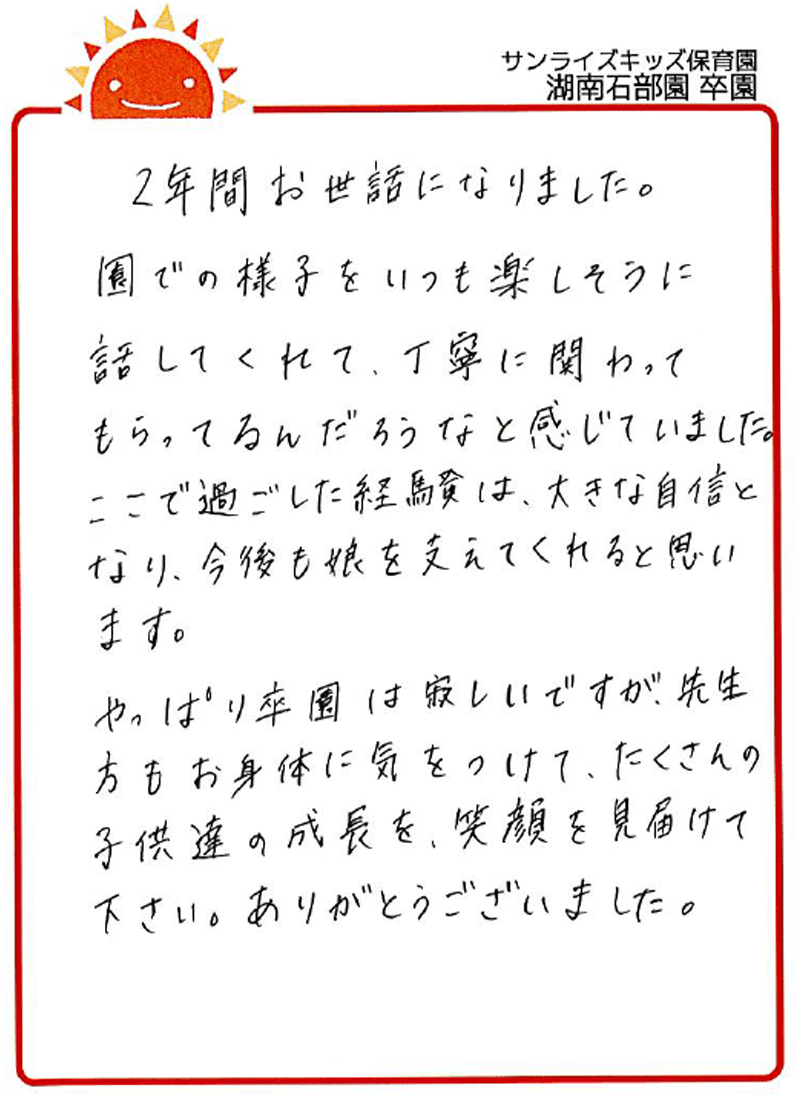 サンライズキッズ保育園
湖南石部園 卒園
2年間お世話になりました。
園での様子をいつも楽しそうに
話してくれて、丁寧に関わって
もらってるんだろうなと感じていました。
ここで過ごした経験は、大きな自信と
なり、今後も娘を支えてくれると思い
ます。
やっぱり卒園は寂しいですが、先生
方もお身体に気をつけて、たくさんの
子供達の成長を、笑顔を見届けて
下さい。ありがとうございました。